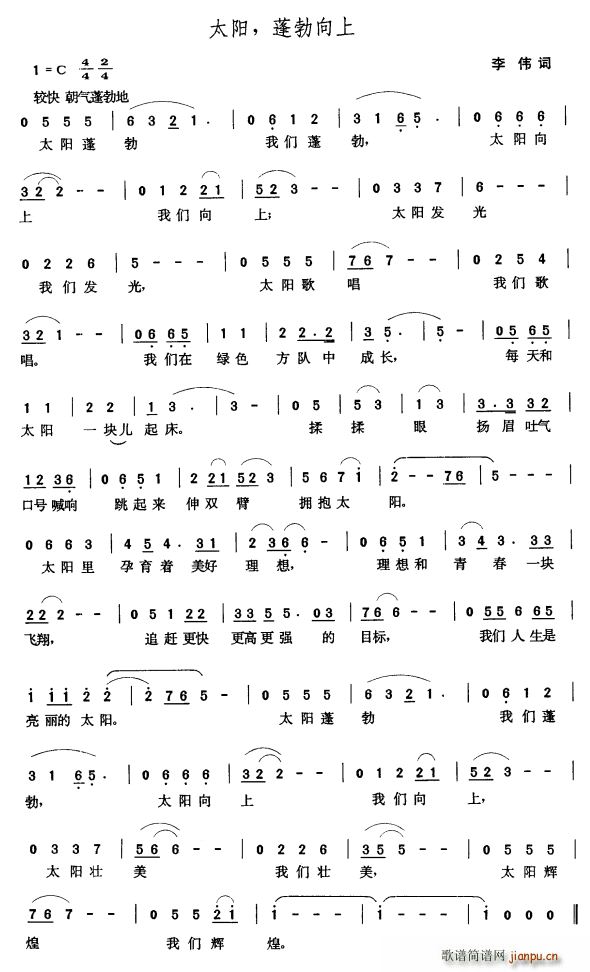 太阳，蓬勃向上
1=C 4/4 2/4
李 伟 词
较快 朝气蓬勃地
0 5 5 5 | 6 3 2 1 · | 0 6 1 2 | 3 1 6 5 · | 0 6 6 6 |
太 阳 蓬 勃 我 们 蓬 勃, 太 阳 向
3 2 2 - - | 0 1 2 2 1 | 5 2 3 - - | 0 3 3 7 | 6 - - - |
上 我 们 向 上; 太 阳 发 光
0 2 2 6 | 5 - - - | 0 5 5 5 | 7 6 7 - - | 0 2 5 4 |
我 们 发 光, 太 阳 歌 唱 我 们 歌
3 2 1 - - | 0 6 6 6 5 | 1 1 | 2 2 2 . 2 | 3 5 · | 5 - | 0 5 6 5 |
唱。 我 们 在 绿 色 方 队 中 成 长, 每 天 和
1 1 | 2 2 | 1 3 · | 3 - | 0 5 | 5 3 | 1 3 | 3 . 3 3 2 |
太 阳 一 块 儿 起 床。 揉 揉 眼 扬 眉 吐 气
1 2 3 6 | 0 6 5 1 | 2 2 1 5 2 3 | 5 6 7 1 | 2 - - 7 6 | 5 - - - |
口 号 喊 响 跳 起 来 伸 双 臂 拥 抱 太 阳。
0 6 6 3 | 4 5 4 . 3 1 | 2 3 6 6 - | 0 6 5 1 | 3 4 3 . 3 3 |
太 阳 里 孕 育 着 美 好 理 想, 理 想 和 青 春 一 块
2 2 2 - - | 0 5 1 2 2 | 3 3 5 5 . 0 3 | 7 6 6 - | 0 5 5 6 6 5 |
飞 翔, 追 赶 更 快 更 高 更 强 的 目 标, 我 们 人 生 是
1 1 1 2 2 | 2 7 6 5 - | 0 5 5 5 | 6 3 2 1 · | 0 6 1 2 |
亮 丽 的 太 阳。 太 阳 蓬 勃 我 们 蓬
3 1 6 5 · | 0 6 6 6 | 3 2 2 - - | 0 1 2 2 1 | 5 2 3 - - |
勃, 太 阳 向 上 我 们 向 上,
0 3 3 7 | 5 6 6 - - | 0 2 2 2 | 3 5 5 - - | 0 5 5 5 |
太 阳 壮 美 我 们 壮 美, 太 阳 辉
7 6 7 - - | 0 5 5 2 1 | 1 - - - | 1 - - - | 1 0 0 0 ‖
煌 我 们 辉 煌。
歌谱简谱网
jianpu.cn